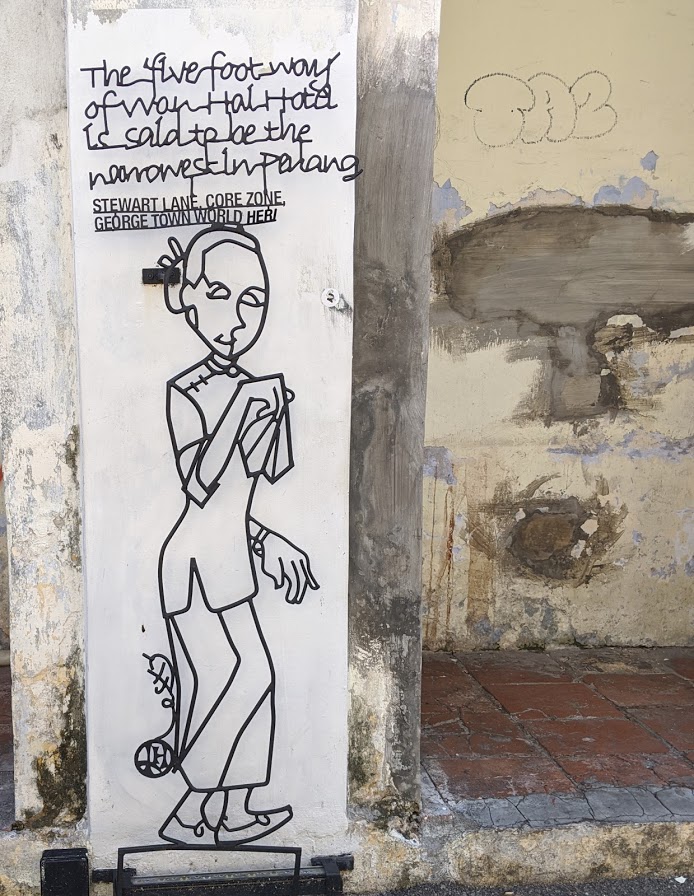 The five foot way
of Wan Hai Hotel
is said to be the
narrowest in Penang
STEWART LANE, CORE ZONE,
GEORGE TOWN WORLD HERI
TAZ